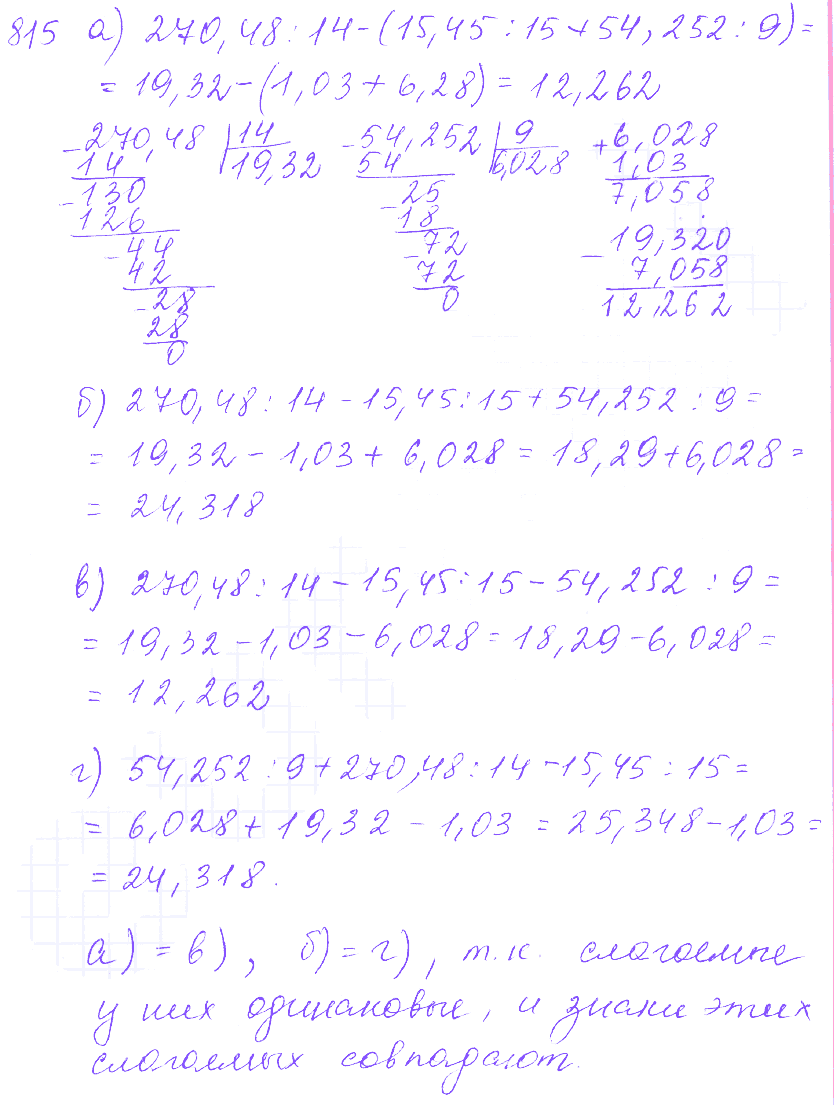 815 а) 270,48 : 14 - (15,45 : 15 + 54,252 : 9) =
= 19,32 - (1,03 + 6,28) = 12,262
- 270,48 | 14 - 54,252 | 9 + 6,028
14 19,32 54 6,028 1,03
- 130 25 7,058
126 - 18 19,320
- 44 - 72 - 7,058
42 72 12,262
- 28 0
28
0
б) 270,48 : 14 - 15,45 : 15 + 54,252 : 9 =
= 19,32 - 1,03 + 6,028 = 18,29 + 6,028 =
= 24,318
в) 270,48 : 14 - 15,45 : 15 - 54,252 : 9 =
= 19,32 - 1,03 - 6,028 = 18,29 - 6,028 =
= 12,262
г) 54,252 : 9 + 270,48 : 14 - 15,45 : 15 =
= 6,028 + 19,32 - 1,03 = 25,348 - 1,03 =
= 24,318.
а) = в), б) = г), т.к. слагаемые
у них одинаковые, и знаки этих
слагаемых совпадают.